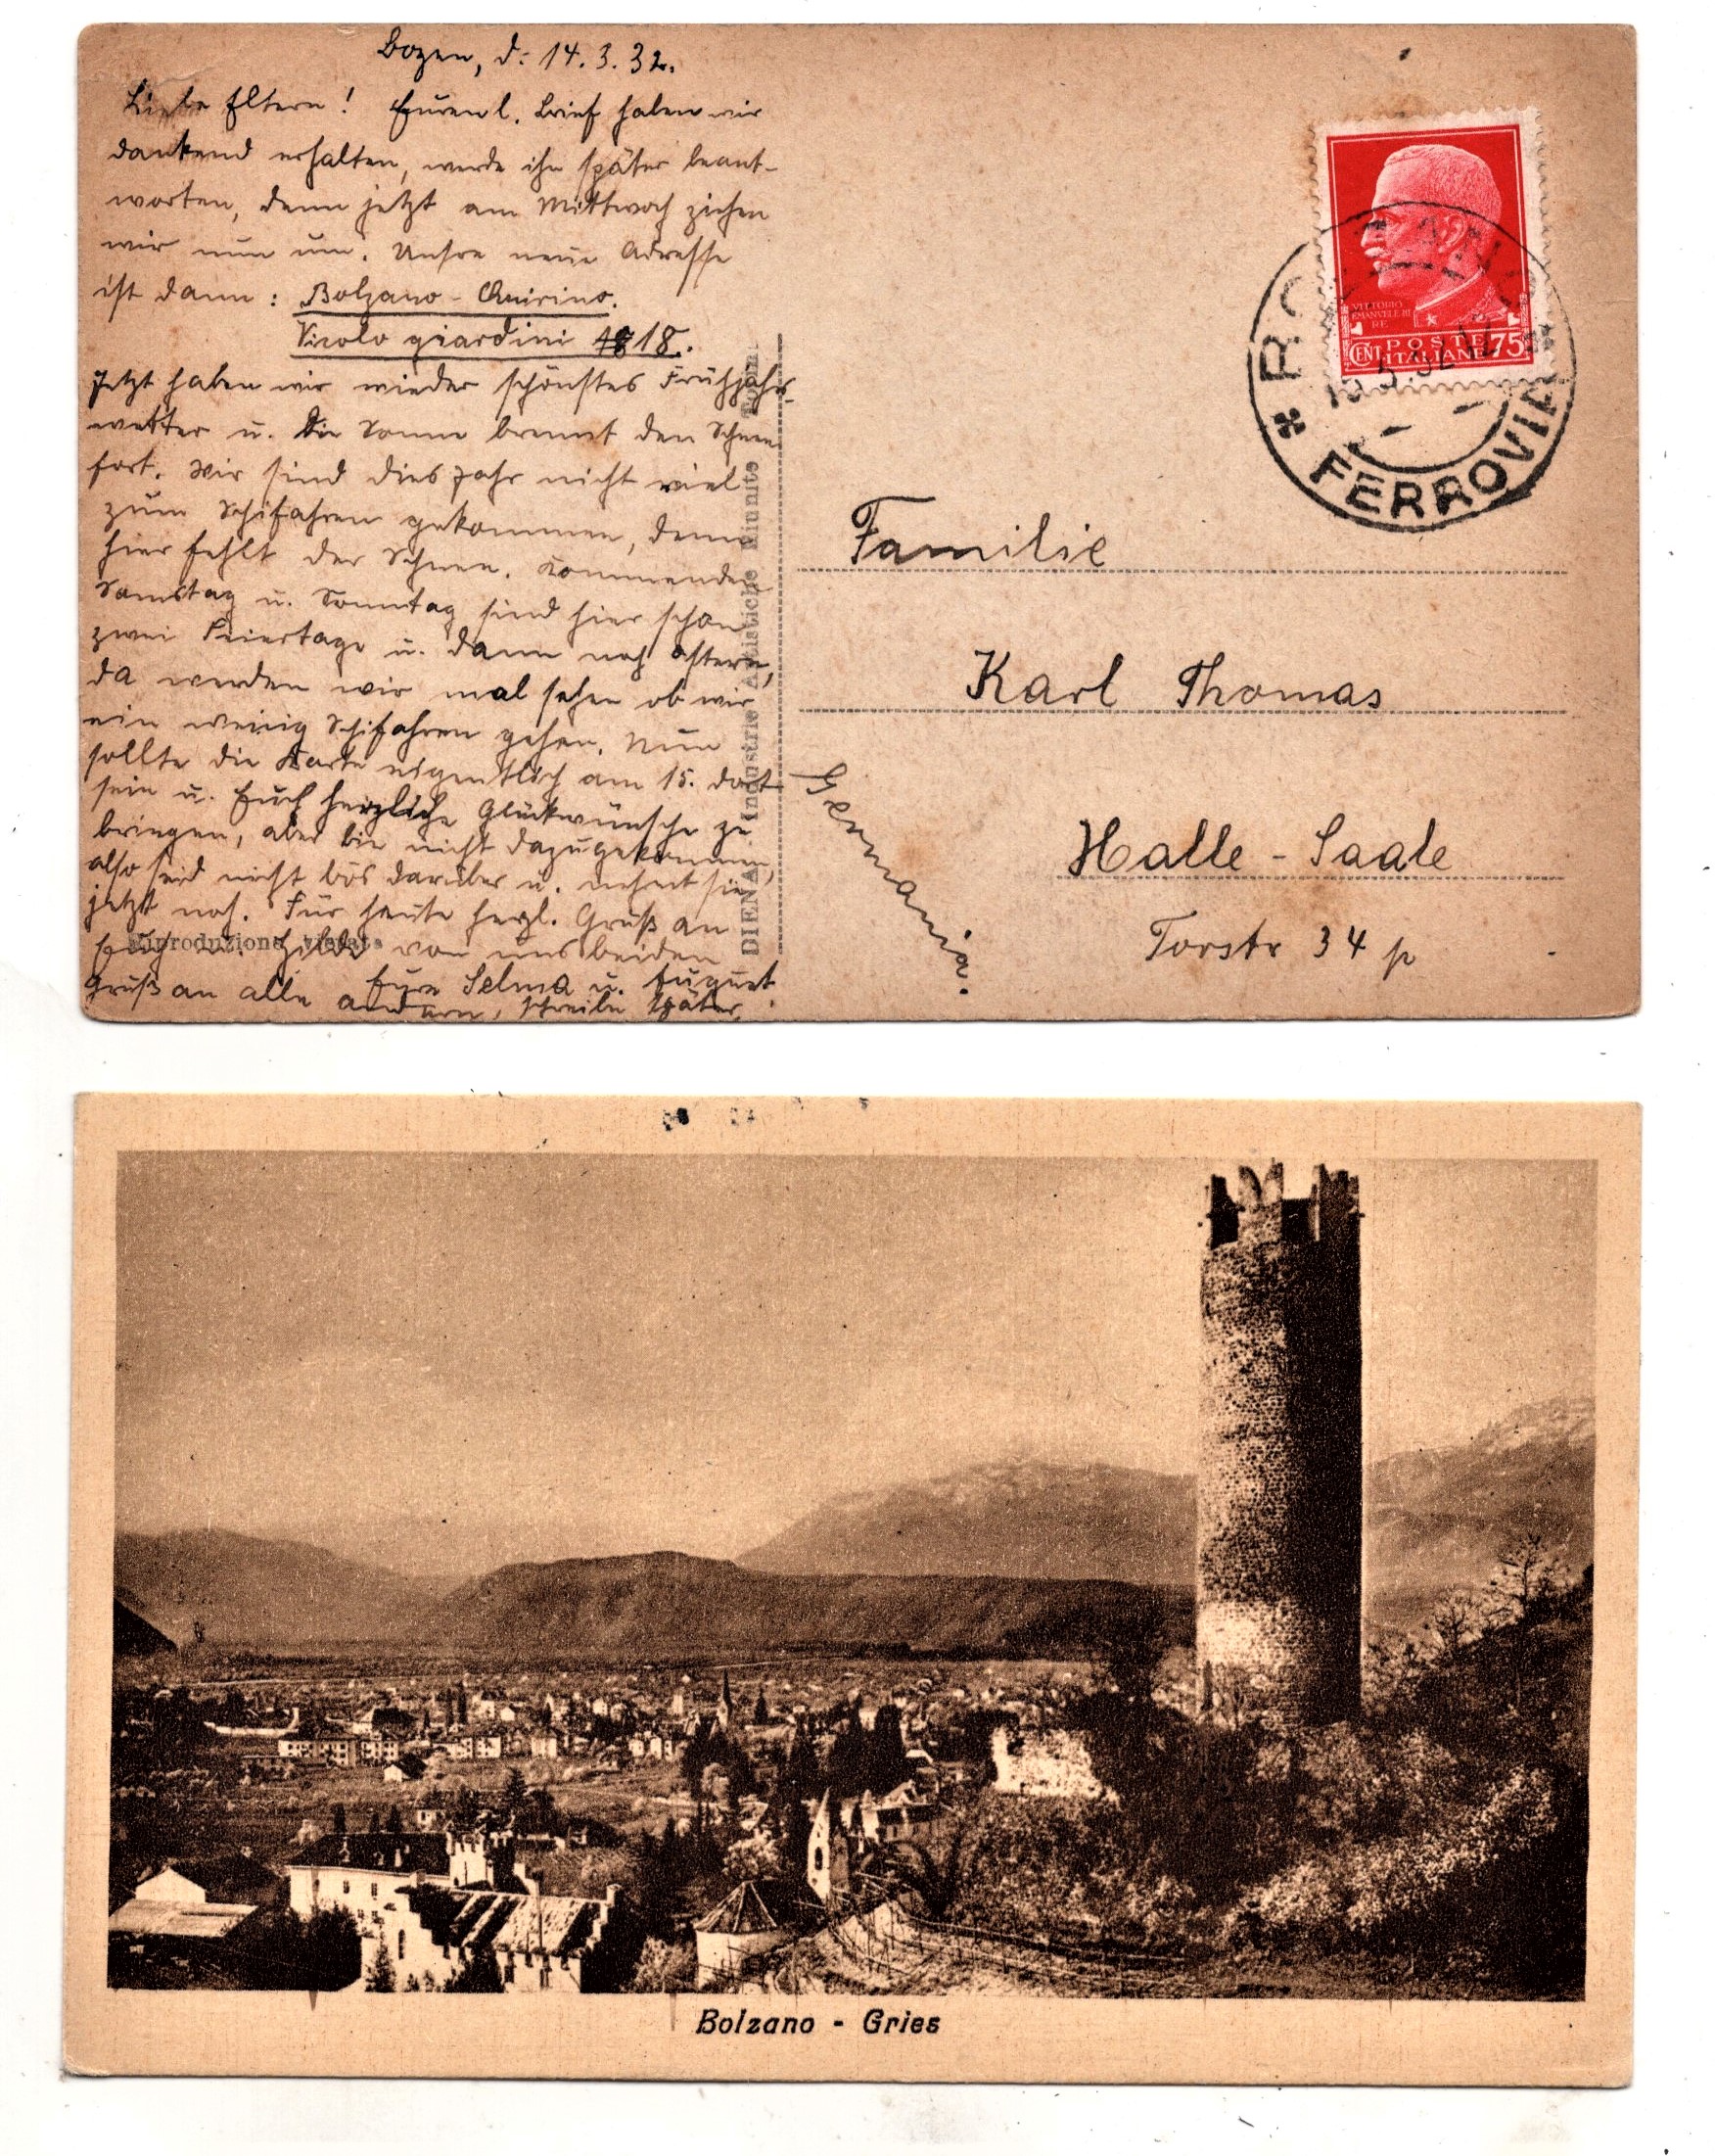 Bozen, d: 14.3.32.
Liebe Eltern! Euren l. Brief haben wir
dankend erhalten, werde ihn später beant-
worten, denn jetzt am Mittwoch ziehen
wir nun um. Unsre neue Adresse
ist dann: Bolzano - Quirino.
Vicolo giardini 18.
Jetzt haben wir wieder schönstes Frühjahrs-
wetter u. die Sonne brennt den Schnee
fort. Wir sind dies Jahr nicht viel
zum Schifahren gekommen, denn
hier fehlt der Schnee. Kommenden
Samstag u. Sonntag sind hier schon
zwei Feiertage u. dann noch Ostern,
da werden wir mal sehen ob wir
ein wenig Schifahren gehen. Nun
sollte die Karte eigentlich am 15. dort
sein u. Euch herzliche Glückwünsche
bringen, aber bin nicht dazugekommen,
also seid nicht bös darüber u. nehmt sie
jetzt noch. Für heute herzl. Gruß an
Euch u. Hilde von uns beiden
Eure Selma u. August
Gruß an alle andern, schreibe später.
Riproduzione vietata
DIENA - Industrie Artistiche Riunite - Torino
VITTORIO
EMANUELE III
RE
POSTE
CENT ITALIANE 75
BOLZANO
FERROVIA
Familie
Karl Thomas
Halle - Saale
Torstr 34 p
Germania.
Bolzano - Gries